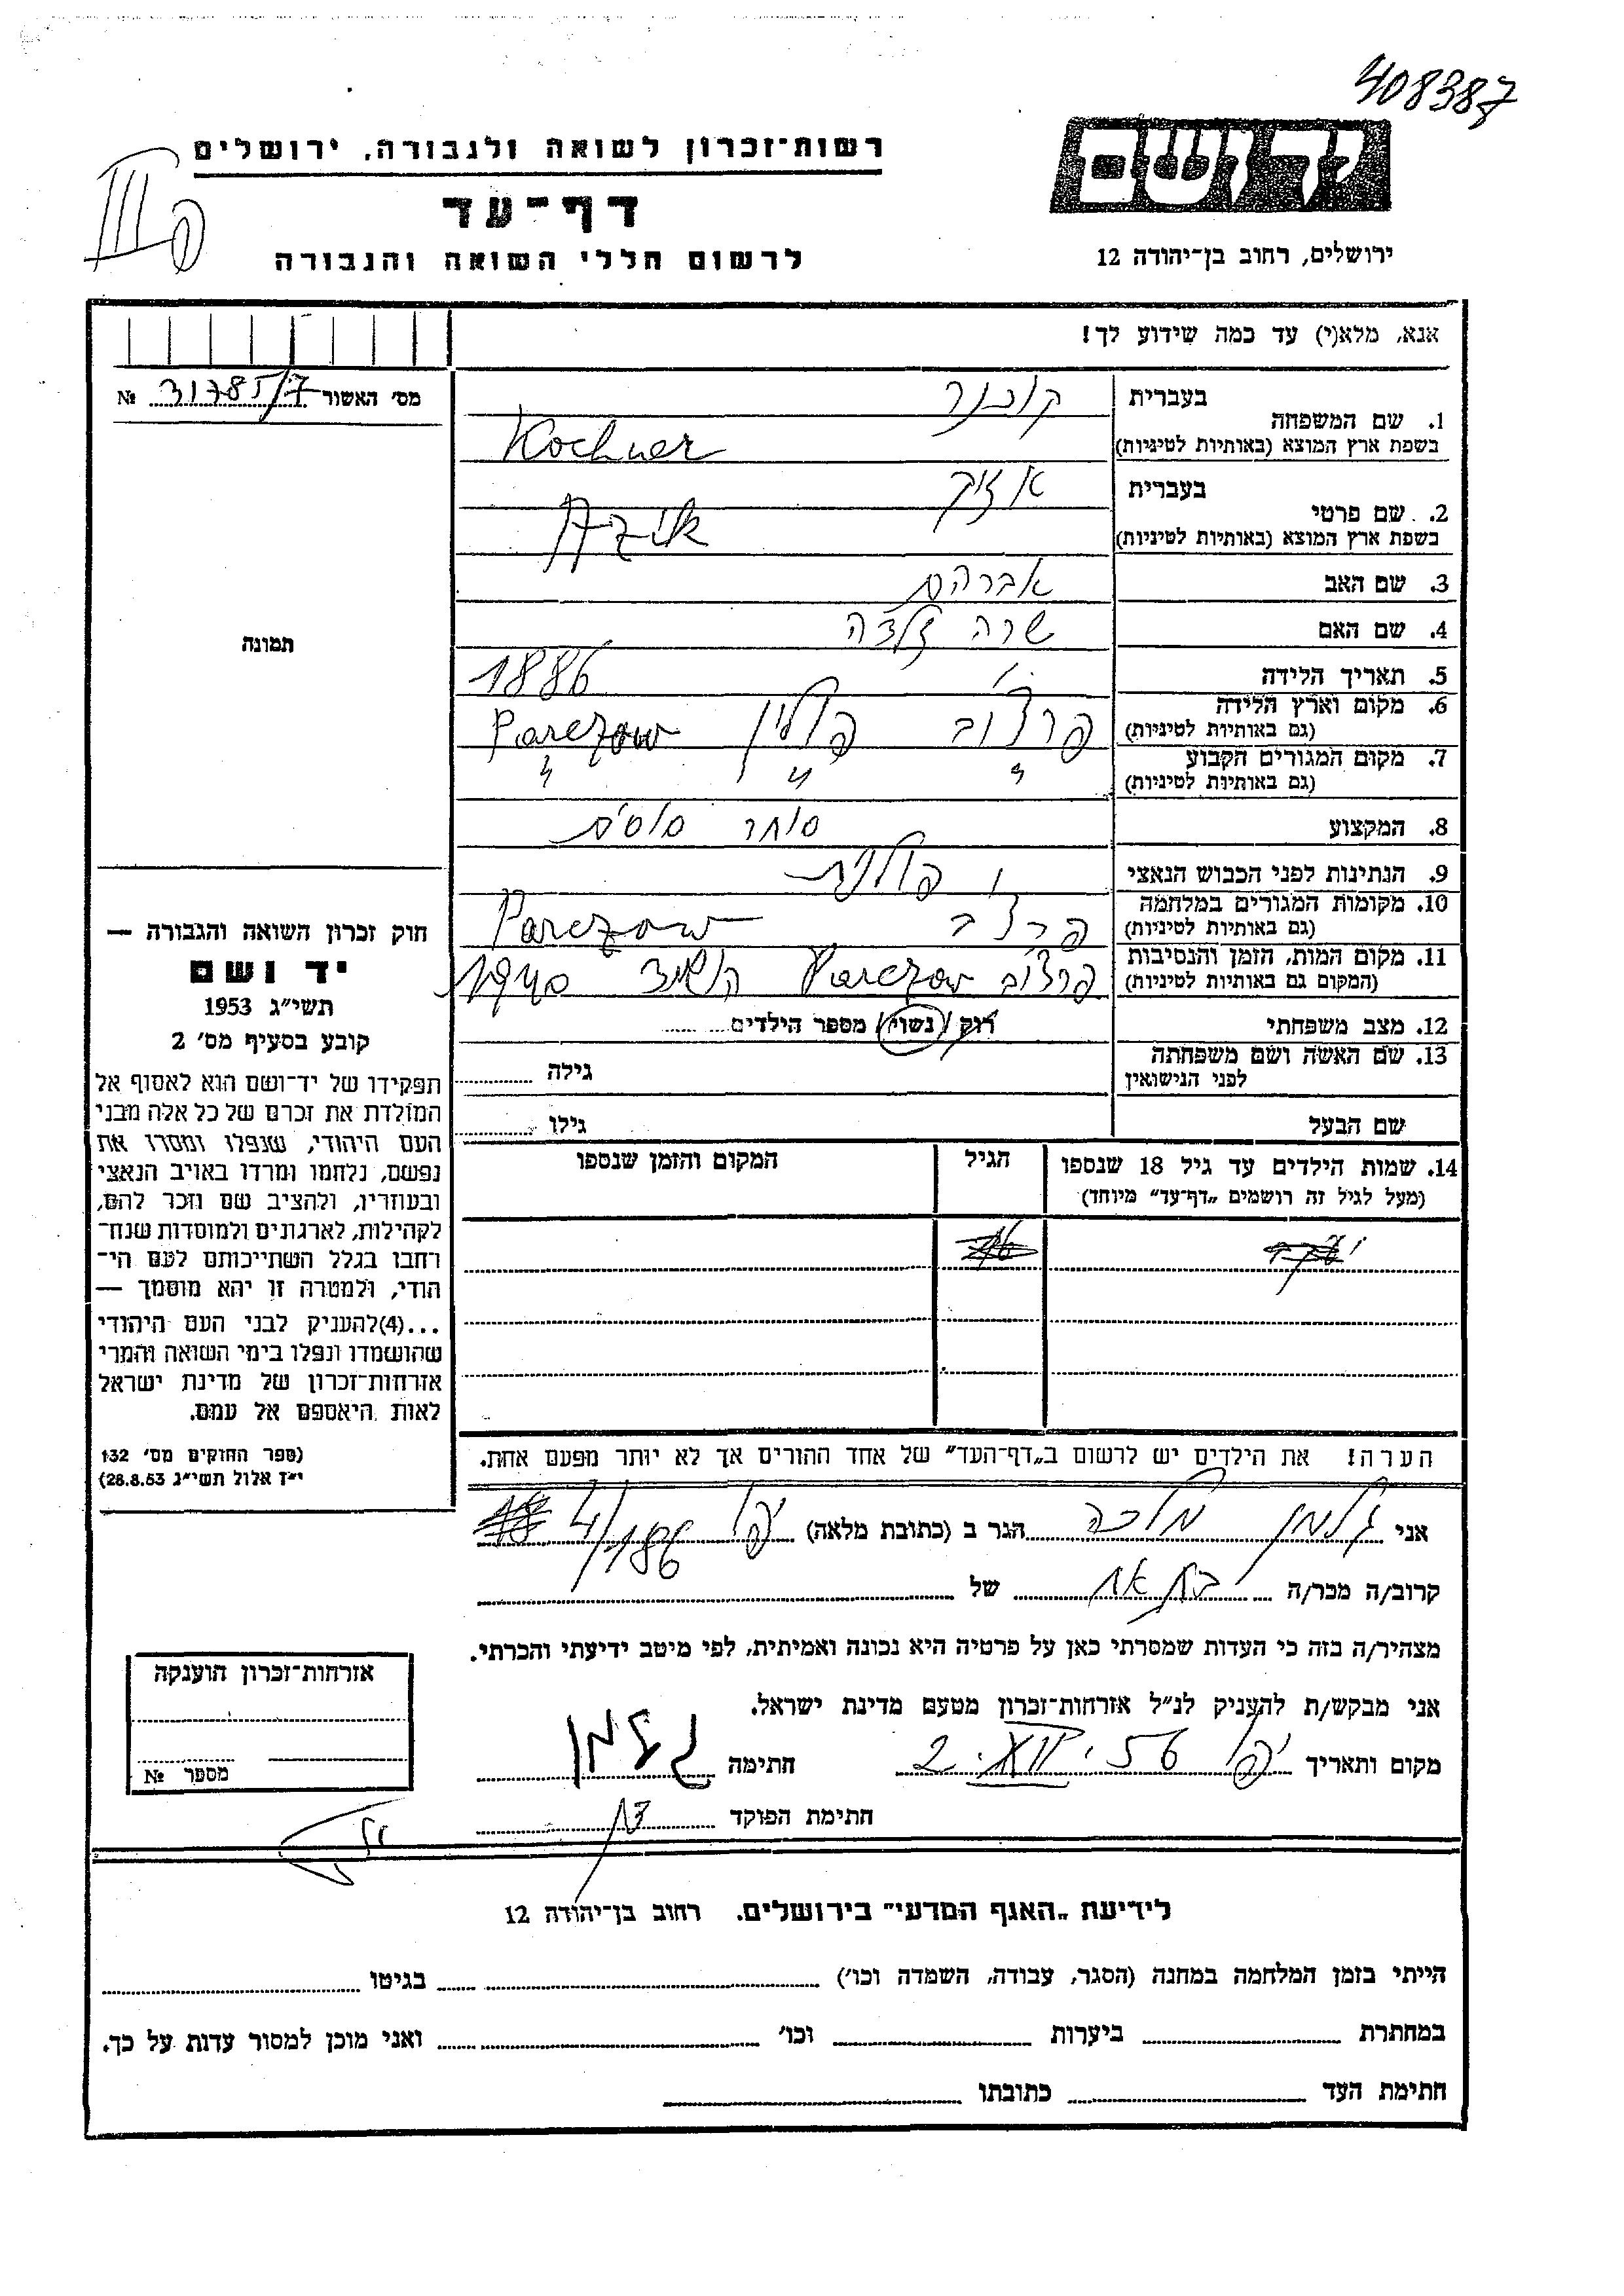 408387
רשות־זכרון לשואה ולגבורה, ירושלים
דף־עד
לרשום חללי השואה והגבורה
ידושם
ירושלים, רחוב בן־יהודה 12
III פ
אנא, מלא(י) עד כמה שידוע לך!
מס׳ האשור 31785/7 №
תמונה
1. שם המשפחה
בעברית קוכנר
בשפת ארץ המוצא (באותיות לטיניות) Kochner
2. שם פרטי
בעברית אזיק
בשפת ארץ המוצא (באותיות לטיניות)
3. שם האב אברהם
4. שם האם שרה זלדה
5. תאריך הלידה 1886
6. מקום וארץ הלידה פרצוב פולין Parczow
(גם באותיות לטיניות)
7. מקום המגורים הקבוע " " "
(גם באותיות לטיניות)
8. המקצוע סוחר סוסים
9. הנתינות לפני הכבוש הנאצי פולנית
10. מקומות המגורים במלחמה פרצוב Parczow
(גם באותיות לטיניות)
11. מקום המות, הזמן והנסיבות פרצוב Parczow 1940
(המקום גם באותיות לטיניות)
12. מצב משפחתי רוק / נשוי / מספר הילדים
13. שם האשה ושם משפחתה גילה
לפני הנישואין
שם הבעל גילו
14. שמות הילדים עד גיל 18 שנספו הגיל המקום והזמן שנספו
(מעל לגיל זה רושמים „דף־עד” מיוחד)
הערה! את הילדים יש לרשום ב„דף־העד” של אחד ההורים אך לא יותר מפעם אחת.
חוק זכרון השואה והגבורה —
יד ושם
תשי״ג 1953
קובע בסעיף מס׳ 2
תפקידו של יד־ושם הוא לאסוף אל
המולדת את זכרם של כל אלה מבני
העם היהודי, שנפלו ומסרו את
נפשם, נלחמו ומרדו באויב הנאצי
ובעוזריו, ולהציב שם וזכר להם,
לקהילות, לארגונים ולמוסדות שנח־
רחבו בגלל השתייכותם לעם הי־
הודי, ולמטרה זו יהא מוסמך —
...(4)להעניק לבני העם היהודי
שהושמדו ונפלו בימי השואה והמרי
אזרחות־זכרון של מדינת ישראל
לאות היאספם אל עמם.
(ספר החוקים מס׳ 132
י״ז אלול תשי״ג 28.8.53)
אני גלמן מלכה הגר ב (כתובת מלאה) יפו 4/186
קרוב/ה מכר/ה בת אח של
מצהיר/ה בזה כי העדות שמסרתי כאן על פרטיה היא נכונה ואמיתית, לפי מיטב ידיעתי והכרתי.
אני מבקש/ת להעניק לנ״ל אזרחות־זכרון מטעם מדינת ישראל.
מקום ותאריך יפו 2.XII.56 חתימה גלמן
חתימת הפוקד
אזרחות־זכרון הוענקה
מספר №
לידיעת „האגף המדעי” בירושלים. רחוב בן־יהודה 12
הייתי בזמן המלחמה במחנה (הסגר, עבודה, השמדה וכו׳) בגיטו
במחתרת ביערות וכו׳ ואני מוכן למסור עדות על כך.
חתימת העד כתובתו